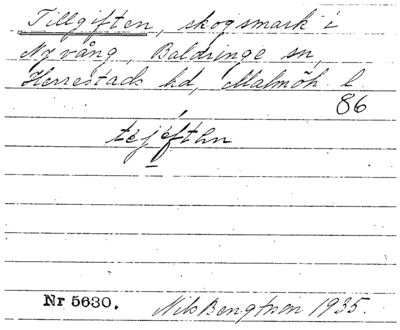 Tillgiften, skogsmark i
Nyvång, Baldringe sn,
Herrestads hd, Malmöh. l.
86
Nr 5630. Nils Bengtson 1935.